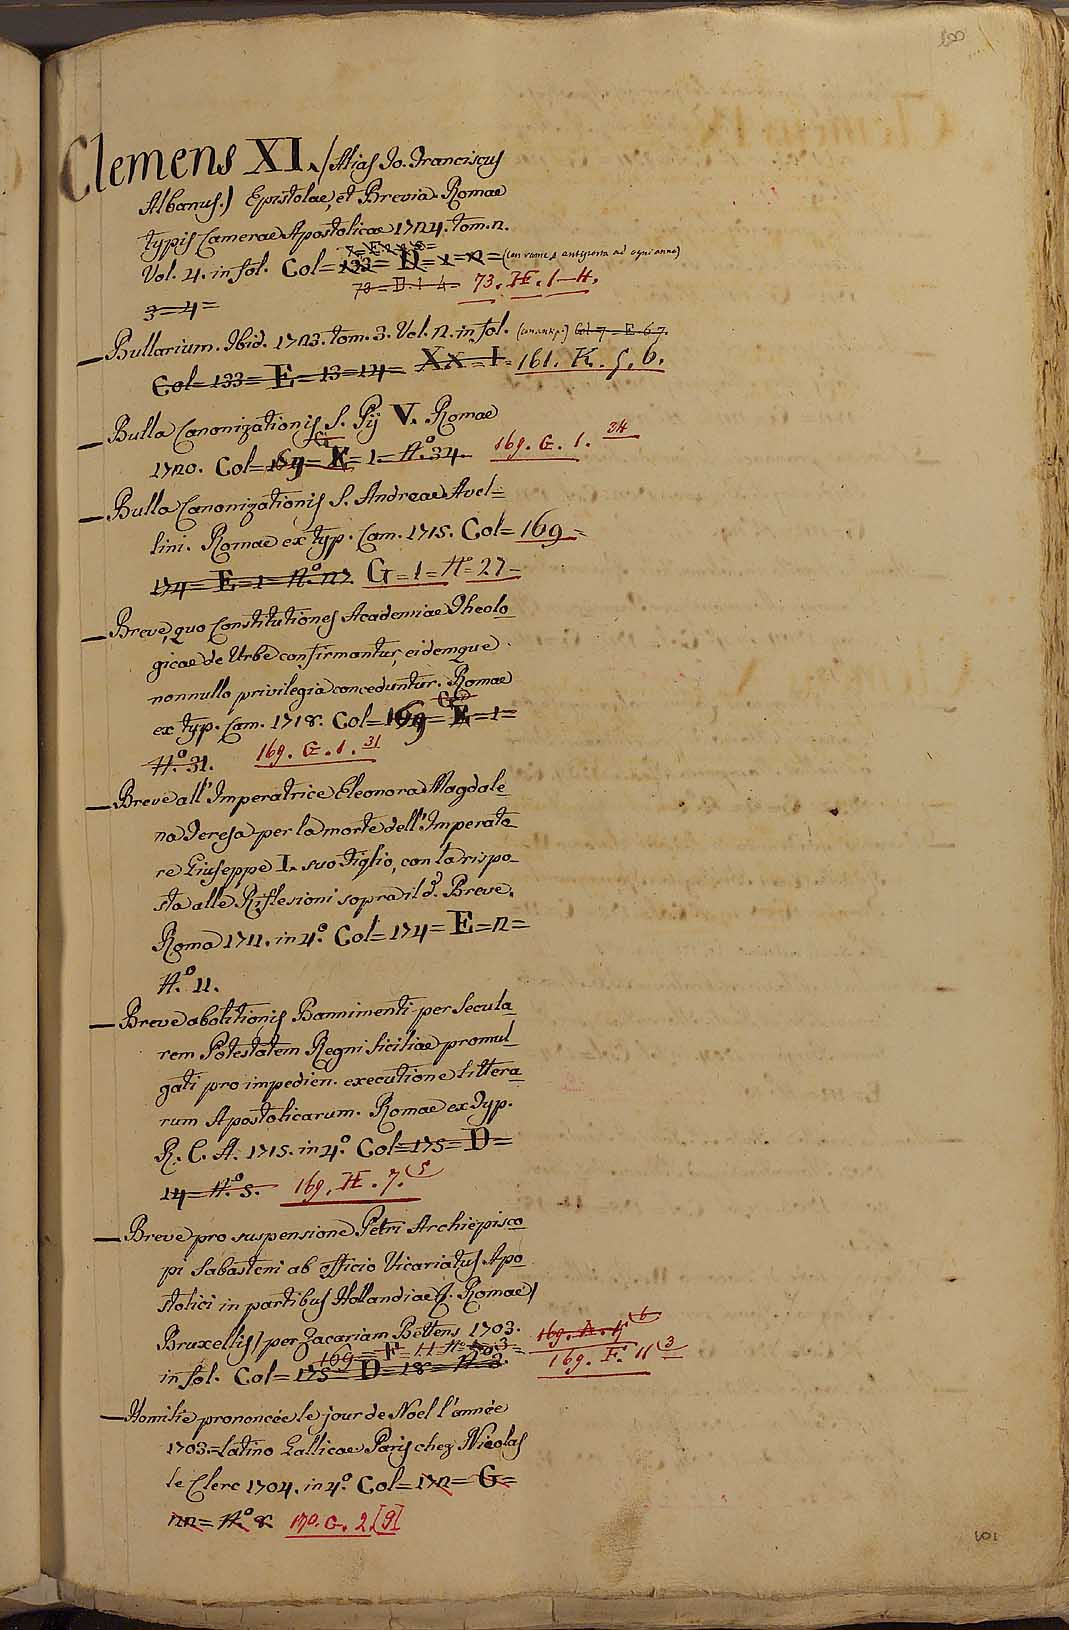 Clemens XI. (Alias Jo. Franciscus
Albanus.) Epistolae, et Brevia. Romae
typis Camerae Apostolicae 1724. tom. 2.
Vol. 4. in fol. Col= 133= D= 1= 2= (con rame, e antiporta ad ogni anno)
3=4=
73= D. 1. 4= 73. H. 1-4.
— Bullarium. Ibid. 1723. tom. 3. Vol. 2. in fol. Col 7= E. 6 7.
Col= 133= E= 13=14= XX= I= 161. K. 5. 6.
— Bulla Canonizationis S. Pij V. Romae
1720. Col= 169= G = 1= N.º 34. 169. G. 1. 34
— Bulla Canonizationis S. Andreae Avel=
lini. Romae ex typ. Cam. 1715. Col= 169=
174= E= 1= N.º 27. G=1= Nº= 27=
— Breve, quo Constitutiones Academiae Theolo
gicae de Urbe confirmantur, eidemque
nonnulla privilegia conceduntur. Romae
ex typ. Cam. 1718. Col= 169= G =1=
N.º 31. 169. G. 1. 31
— Breve all'Imperatrice Eleonora Magdale
na Teresa per la morte dell'Imperato
re Giuseppe I. suo Figlio, con la rispo
sta alle Riflesioni sopra il dº. Breve.
Roma 1711. in 4º. Col= 174= E= 2=
N.º 11.
— Breve abolitionis Bannimenti per Secula
rem Potestatem Regni Siciliae promul
gati pro impedien. executione littera
rum Apostolicarum. Romae ex Typ.
R. C. A. 1715. in 4º. Col= 175= D=
14= N.º 5. 169. H. 7. (5
— Breve pro suspensione Petri Archiepisco
pi Sabasteni ab officio Vicariatus Apo
stolici in partibus Hollandiae (J. Romae)
Bruxellis) per Zacariam Bettens 1703. 169. A. 4 (6
169= F= 11 Nº 3=
in fol. Col= 175= D= 18= N.º 3. 169. F. 11 (3
— Homilie prononcée le jour de Noel l'année
1703.=Latino Gallicae Paris chez Nicolas
le Clerc 1704. in 4º. Col= 172= G=
22= N.º 8. 170. G. 2. [9]
101